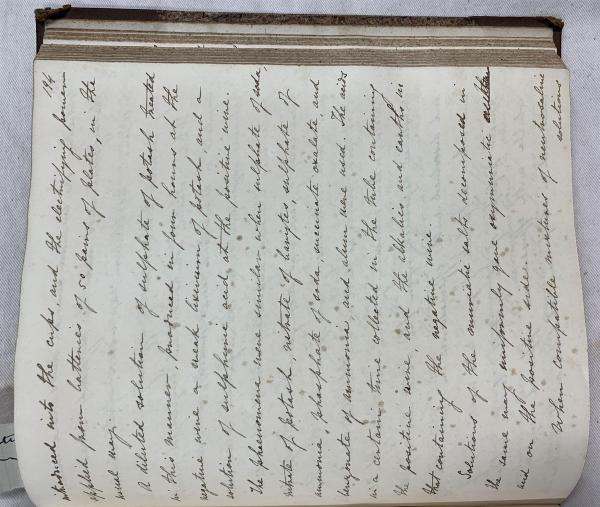 194
introduced into the cups, and the electrifying power
applied from batteries of 50 pairs of plates, in the
usual way.
A diluted solution of sulphate of potash treated
in this manner, produced in four hours at the
negative wire a weak lixivium of potash and a
solution of sulphuric acid at the positive wire.
The phaenomena were similar when sulphate of soda,
nitrate of potash, nitrate of barytes sulphate of
ammonia, phosphate of soda, succinate oxalate and
benzoate of ammonia and alum were used. The acids
in a certain time collected in the tube containing
the positive wire, and the alkalies and earths in
that containing the negative wire.
Solutions of the muriatic salts decomposed in
the same way uniformly gave oxymuriatic
and on the positive side.
When compatible mixtures of
solutions